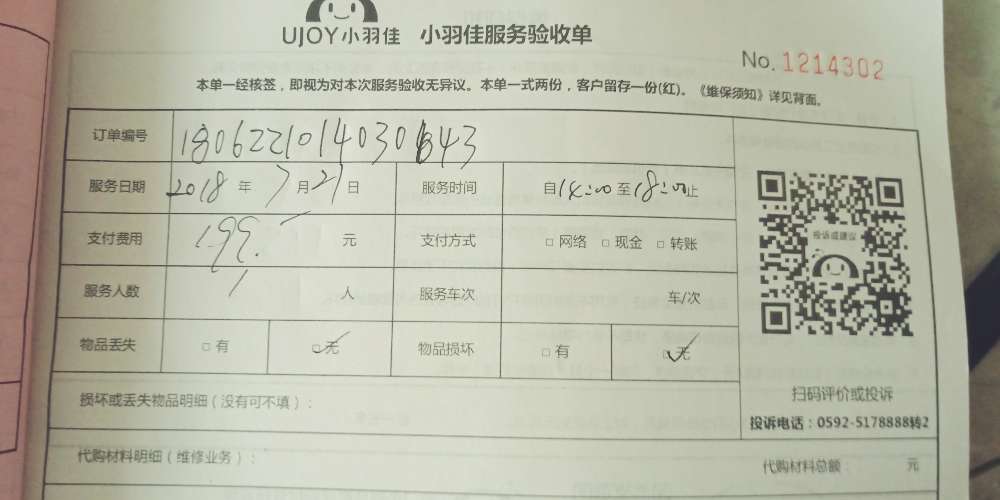 UJOY小羽佳 小羽佳服务验收单
No. 1214302
本单一经核签，即视为对本次服务验收无异议。本单一式两份，客户留存一份(红)。《维保须知》详见背面。
订单编号
服务日期 2018 年 7 月 21 日 服务时间 自14:00至18:00止
支付费用 199. 元 支付方式 □ 网络 □ 现金 □ 转账
投诉或建议
服务人数 1 人 服务车次 车/次
物品丢失 □ 有 □ 无 物品损坏 □ 有 □ 无
扫码评价或投诉
损坏或丢失物品明细（没有可不填）：
投诉电话：0592-5178888转2
代购材料明细（维修业务）： 代购材料总额： 元